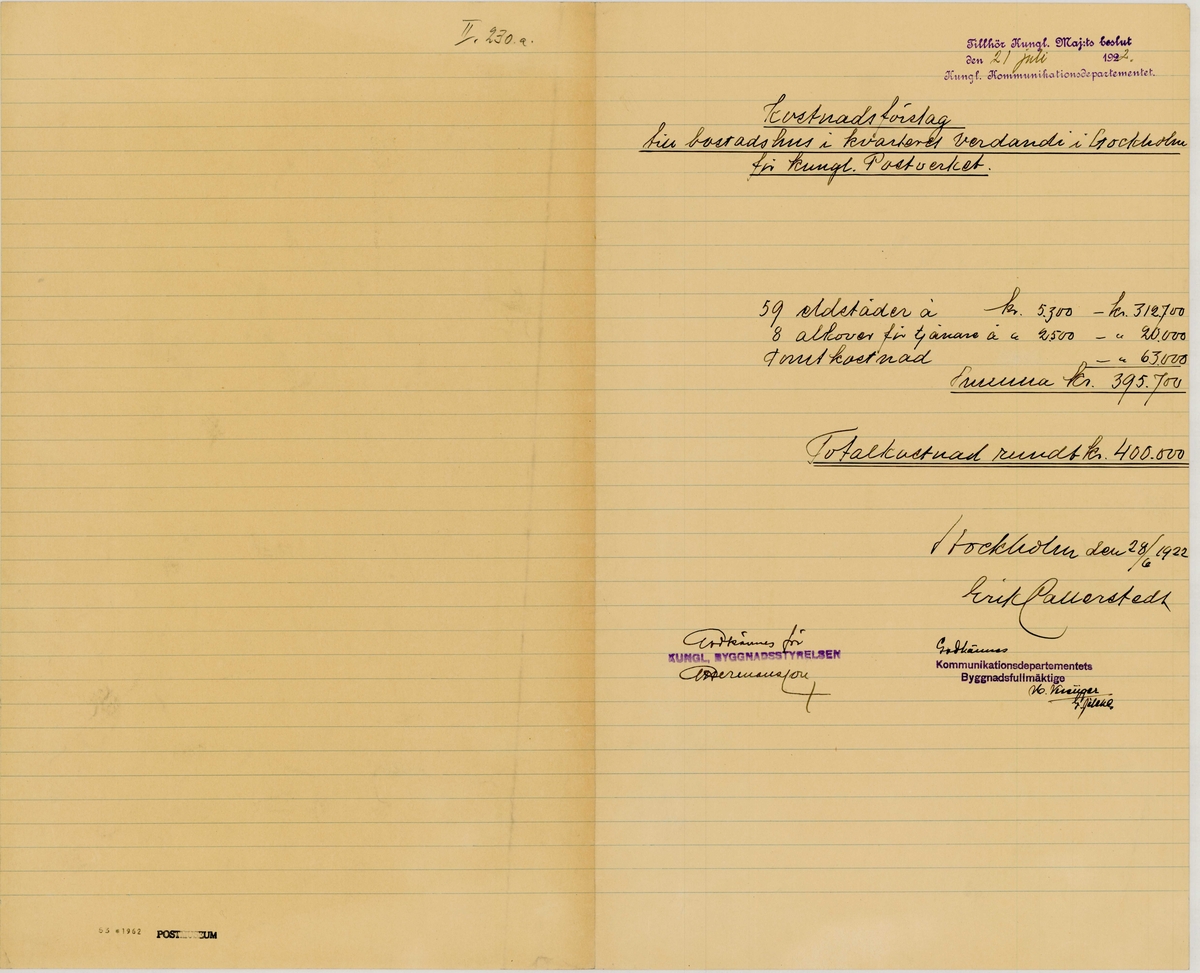 II. 230.a.
Tillhör Kungl. Maj:ts beslut
den 21 juli 1922.
Kungl. Kommunikationsdepartementet.
Kostnadsförslag
till bostadshus i kvarteret Verdandi i Stockholm
för Kungl. Postverket.
59 eldstäder à kr. 5300 – kr. 312.700
8 alkover för tjänare à " 2500 – " 20.000
Tomtkostnad – " 63.000
Summa kr. 395.700
Totalkostnad rundt kr. 400.000
Stockholm den 28/6 1922
Erik Lallerstedt
Godkännes för
KUNGL. BYGGNADSSTYRELSEN
Godkännes
Kommunikationsdepartementets
Byggnadsfullmäktige
53 * 1962 POSTMUSEUM